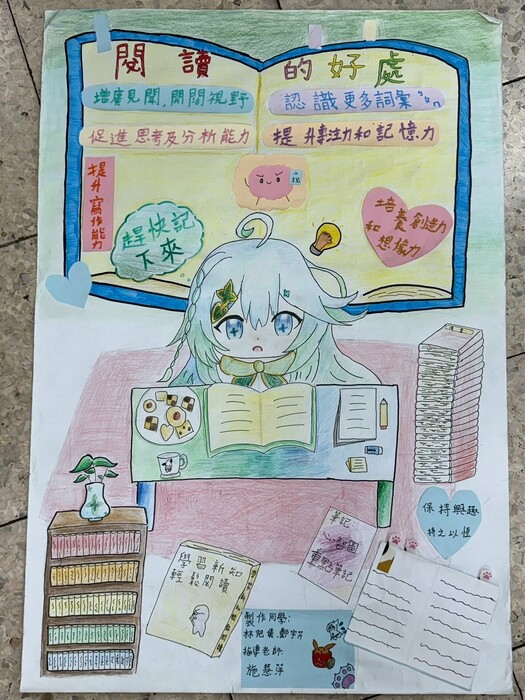 閱讀的好處
增廣見聞,開闊視野
認識更多詞彙
促進思考及分析能力
提升專注力和記憶力
提升寫作能力
趕快記
下來
培養創造力
和
想像力
保持興趣
持之以恆
筆記
心智圖
重點筆記
學習新知
輕鬆閱讀
製作同學:
指導老師:
施慧萍